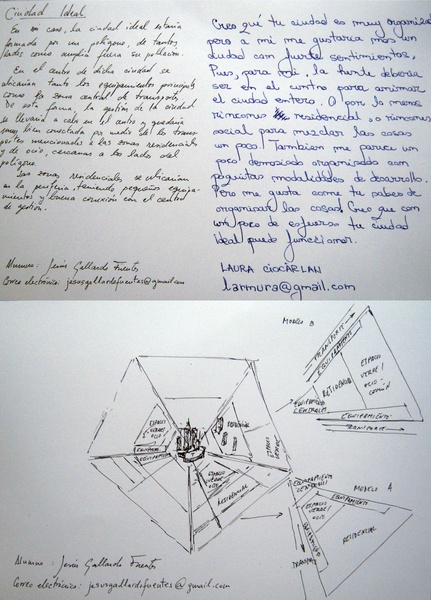 Ciudad Ideal
En mi caso, la ciudad ideal estaría
formada por un polígono, de tantos
lados como amplia fuera su población.
En el centro de dicha ciudad se
ubicarían tantos los equipamientos principales
como la zona central de transportes,
De esta forma, la gestión de la ciudad
se llevaría a cabo en el centro y quedaría
muy bien conectada por medio de los trans-
portes mencionados a las zonas residenciales
y de ocio, cercanas a los lados del
polígono.
Las zonas residenciales se ubicarían
en la periferia, teniendo pequeños equipa-
mientos y buena conexión con el centro
de gestión.
Alumno: Jesús Gallardo Fuentes
Correo electrónico: jesusgallardofuentes@gmail.com
Creo qué tu ciudad es muy organizada
pero a mi me gustaria mas un
ciudad con fuerte sentimientos.
Pues, para mi, la tarde deberia
ser en el centro para animar
el ciudad entero. O por lo menos
rincones residencial, o rincones
social para mezclar las casas
un poco. Tambien me parece un
poco demasiado organizado con
poquitas modalidades de desarrollo.
Pero me gusta como tu sabes de
organizar las cosas. Creo que con
un poco de esfuerzo tu ciudad
ideal puede funccionar.
LAURA CIOCARLAN
larmura@gmail.com
MODELO B
TRANSPORTE
EQUIPAMIENTO
RESIDENCIAL
ESPACIO
VERDE/
OCIO
COMÚN
EQUIPAMIENTO
CENTRALES
EQUIPAMIENTO
TRANSPORTE
ESPACIO
VERDE/
OCIO
EQUIPAM.
RESIDENCIAL
ESPACIO
VERDE/
OCIO
RESIDENCIAL
ESPACIO
EQUIPAMIENTO
CENTRALES
MODELO A
ESPACIO
VERDE/
OCIO
EQUIPAMIENTO
RESIDENCIAL
Alumno: Jesús Gallardo Fuentes
Correo electrónico: jesusgallardofuentes@gmail.com